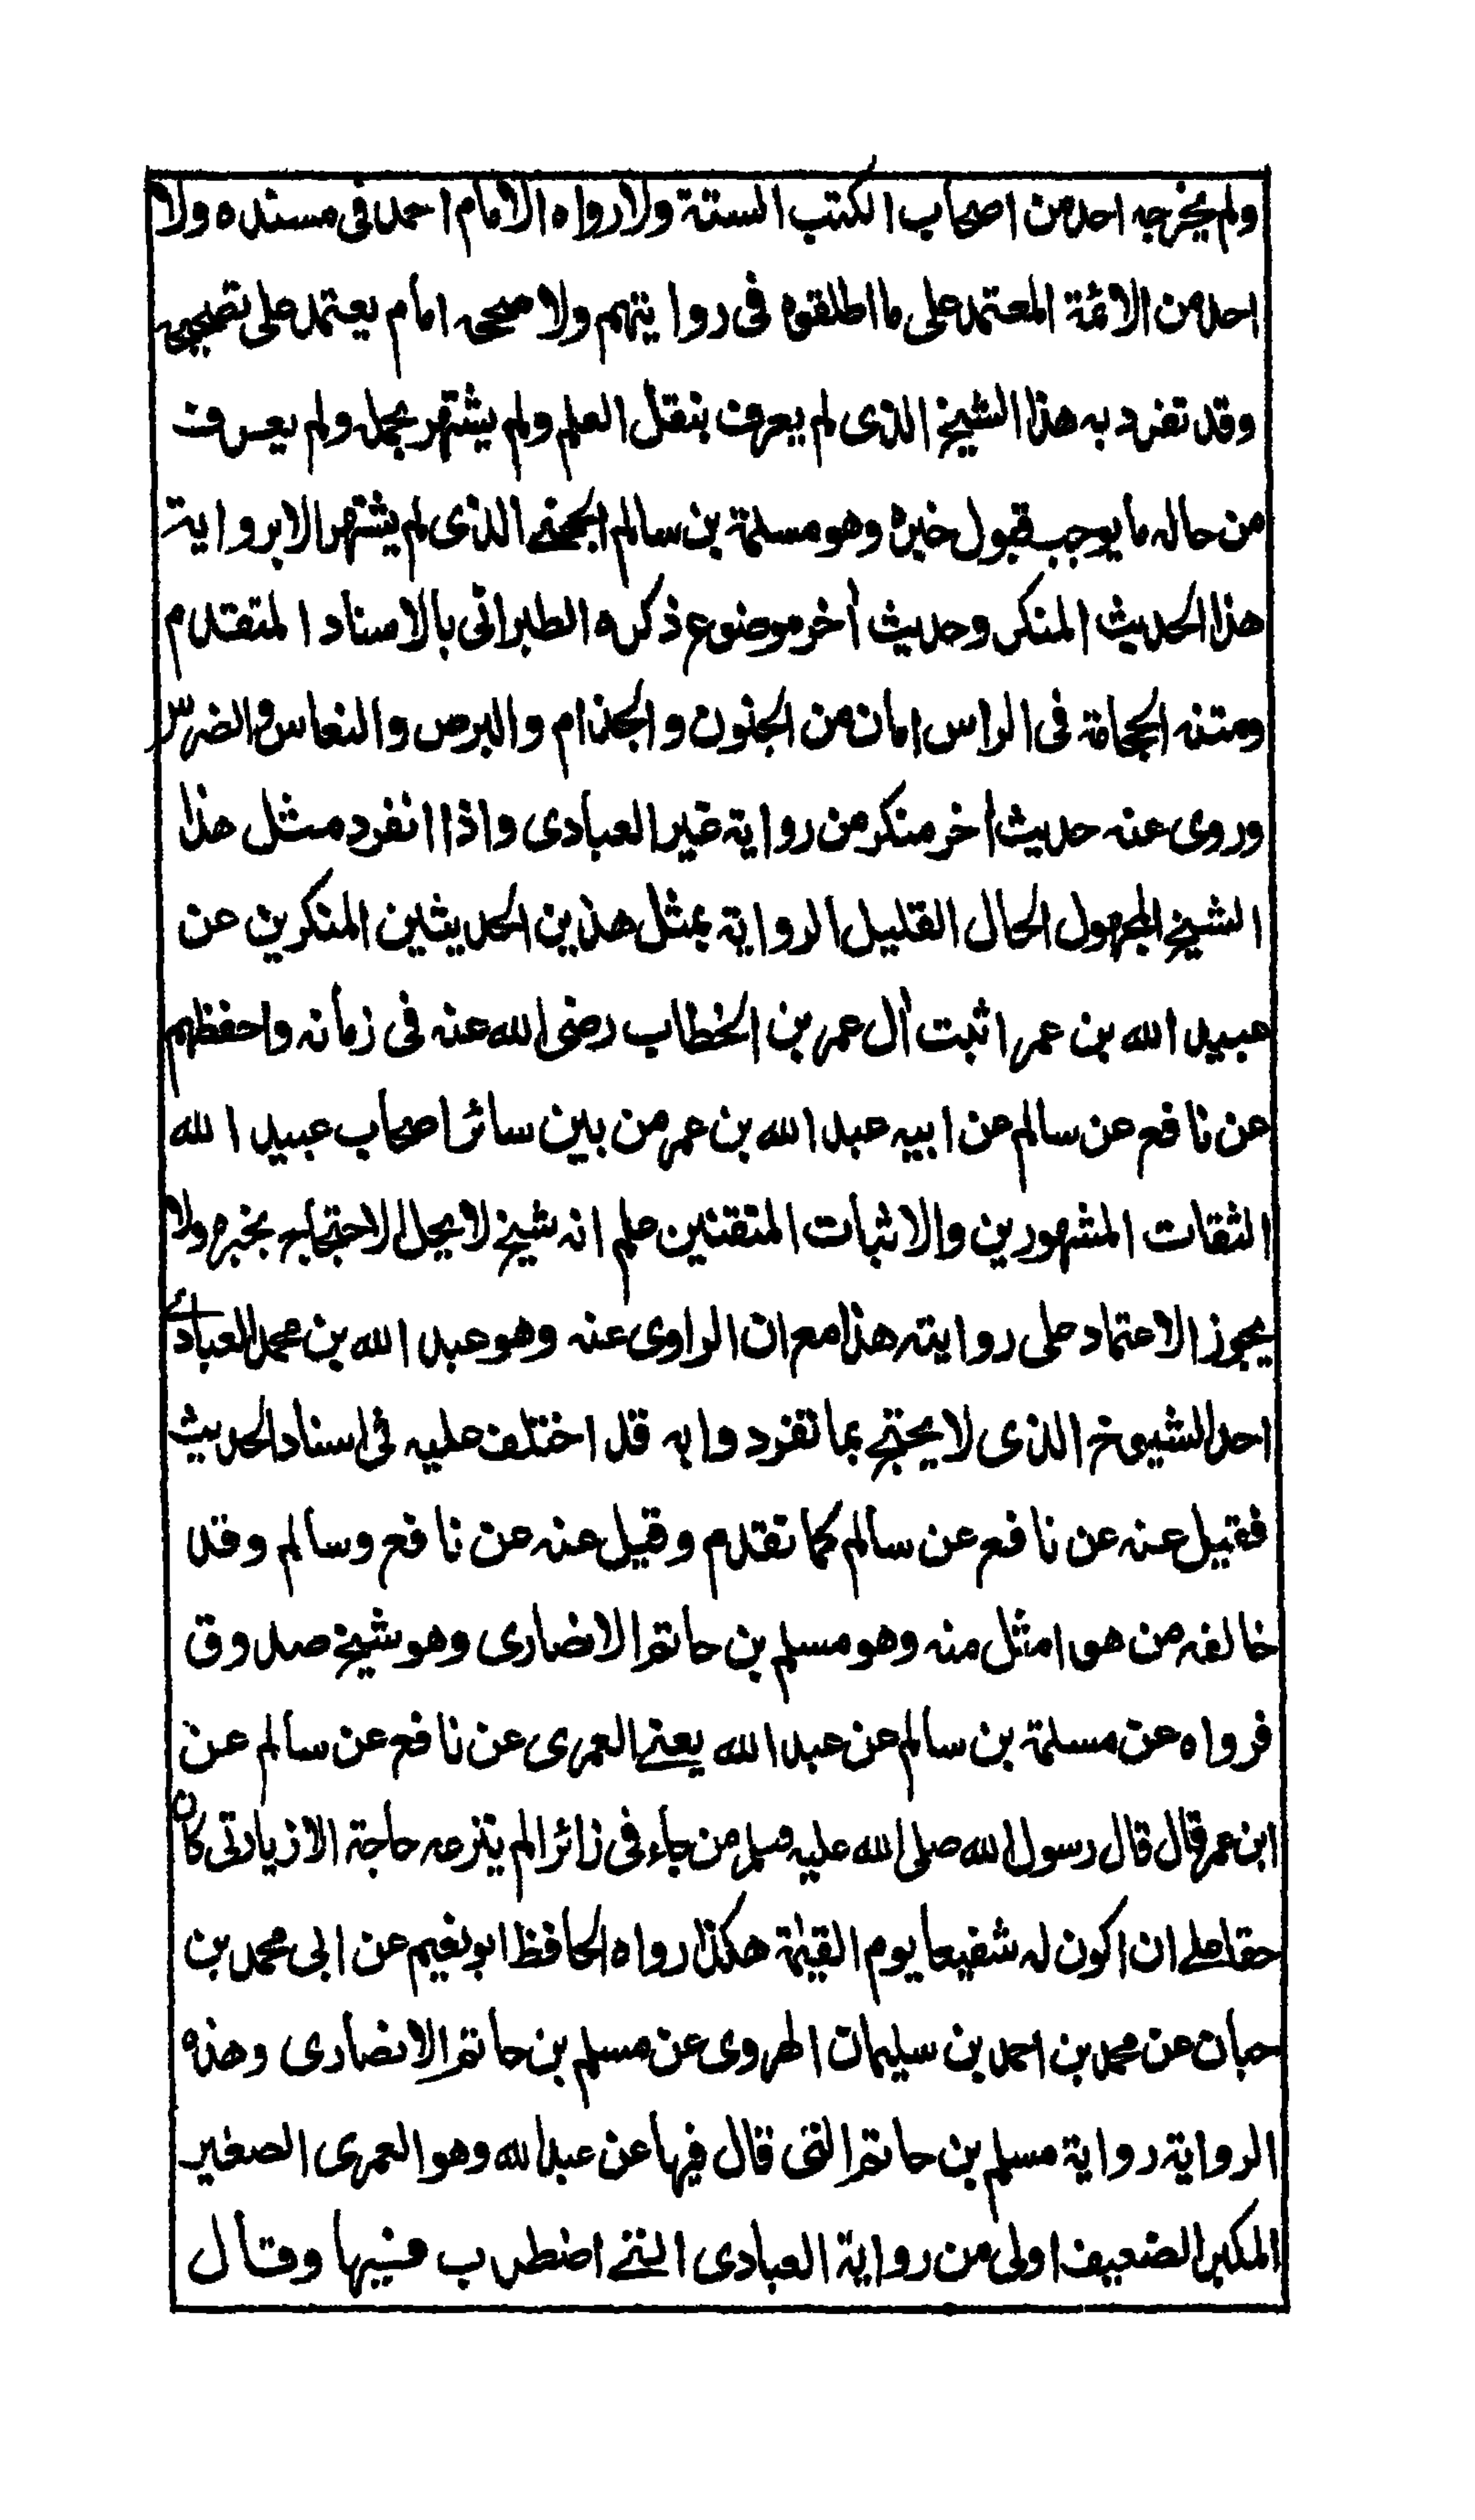 ولم يخرجه احد من اصحاب الكتب الستة ولا رواه الامام احمد فى مسنده ولا
احد من الائمة المعتمد على ما اطلقوه فى روايتهم ولا صححه امام يعتمد على تصحيحه
وقد تفرد به هذا الشيخ الذى لم يعرف بنقل العلم ولم يشتهر بحمله ولم يعرف
من حاله ما يوجب قبول خبره وهو مسلمة بن سالم الجهنے الذى لم يشتهر الا برواية
هذا الحديث المنكر وحديث أخر موضوع ذكره الطبرانى بالاسناد المتقدم
ومتنه الحجامة فى الراس امان من الجنون والجذام والبرص والنعاس والضرس
وروى عنه حديث أخر منكر من رواية غير العبادى واذا انفرد مثل هذا
الشيخ المجهول الحال القليل الرواية بمثل هذين الحديثين المنكرين عن
عبيد الله بن عمر اثبت أل عمر بن الخطاب رضى الله عنه فى زمانه واحفظهم
عن نافع عن سالم عن ابيه عبد الله بن عمر من بين سائر اصحاب عبيد الله
الثقات المشهورين والاثبات المتقنين علم انه شيخ لا يحل الاحتجاج به بخبره ولا
يجوز الاعتماد على روايته هذا مع ان الراوى عنه وهو عبد الله بن محمد العبادى
احد الشيوخ الذى لا يحتج بما تفرد وا به قد اختلف عليه فى اسناد الحديث
فقيل عنه عن نافع عن سالم كما تقدم وقيل عنه عن نافع وسالم وقد
خالفه من هو امثل منه وهو مسلم بن حاتم الانصارى وهو شيخ صدوق
فرواه عن مسلمة بن سالم عن عبد الله يعنے العمرى عن نافع عن سالم عن
ابن عمر قال قال رسول الله صلى الله عليه وسلم من جاءنى زائرا لم ينزعه حاجة الا زيارتى كان
حقا علے ان اكون له شفيعا يوم القيٰمة هكذا رواه الحافظ ابو نعيم عن ابى محمد بن
حبان عن محمد بن احمد بن سليمان الهروى عن مسلم بن حاتم الانصارى وهذه
الرواية رواية مسلم بن حاتم التى قال فيها عن عبد الله وهو العمرى الصغير
المكبر الضعيف اولى من رواية العبادى التے اضطرب فيها وقال